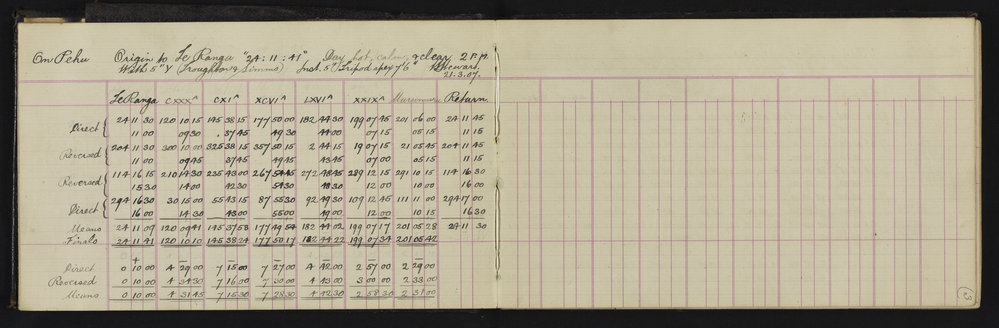 On Pehu Origin to Te Ranga "24:11:41" Day hot, calm, & clear 2 P.M.
With 5" Y (Troughton & Simms) Inst. 5" Tripod apex 7'6" Steward
21.3.07.
Te Ranga CXXX^ CXI^ XCVI^ LXVI^ XXIX^ Return
Direct { 24 11 30 120 10 15 145 38 15 177 50 00 182 44 30 199 07 45 201 06 00 24 11 45
11 00 09 30 37 45 49 30 44 00 07 15 05 15 11 15
Reversed { 204 11 30 300 10 00 325 38 15 357 50 15 2 44 15 19 07 15 21 05 45 204 11 45
11 00 09 45 37 45 49 45 43 45 07 00 05 15 11 15
Reversed { 114 16 15 210 14 30 235 43 00 267 54 45 272 48 45 289 12 15 291 10 15 114 16 30
15 30 14 00 42 30 54 30 48 30 12 00 10 00 16 00
Direct { 294 16 30 30 15 00 55 43 15 87 55 30 92 49 30 109 12 45 111 11 00 294 17 00
16 00 14 30 43 00 55 00 49 00 12 00 10 15 16 30
Means 24 11 09 120 09 41 145 37 58 177 49 54 182 44 02 199 07 17 201 05 28 24 11 30
Finals 24 11 41 120 10 10 145 38 24 177 50 17 182 44 22 199 07 34 201 05 42
+ – – – – – –
Direct 0 10 00 4 29 00 7 15 00 7 27 00 4 42 00 2 57 00 2 29 00
Reversed 0 10 00 4 34 30 7 16 00 7 30 00 4 43 00 3 00 00 2 33 00
Means 0 10 00 4 31 45 7 15 30 7 28 30 4 42 30 2 58 30 2 31 00